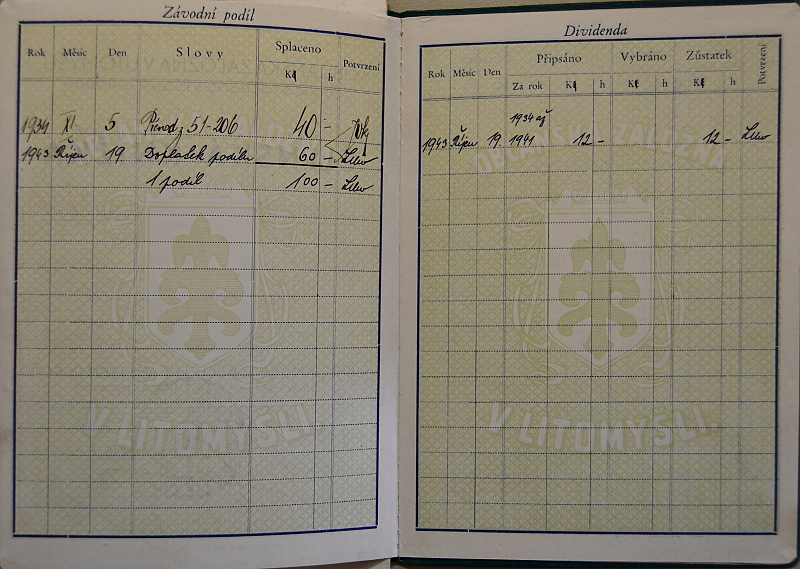 Závodní podíl
Rok Měsíc Den Slovy Splaceno Potvrzení
K h
1934 XI. 5 Převod z 51-206 40 -
1943 Říjen 19. Doplatek podílu 60 -
1 podíl 100 -
V LITOMYŠLI
Dividenda
Rok Měsíc Den Připsáno Vybráno Zůstatek Potvrzení
Za rok K h K h K h
1934 až
1943 Říjen 19. 1941 12 - 12 -
OBČANSKÁ ZÁLOŽNA
V LITOMYŠLI